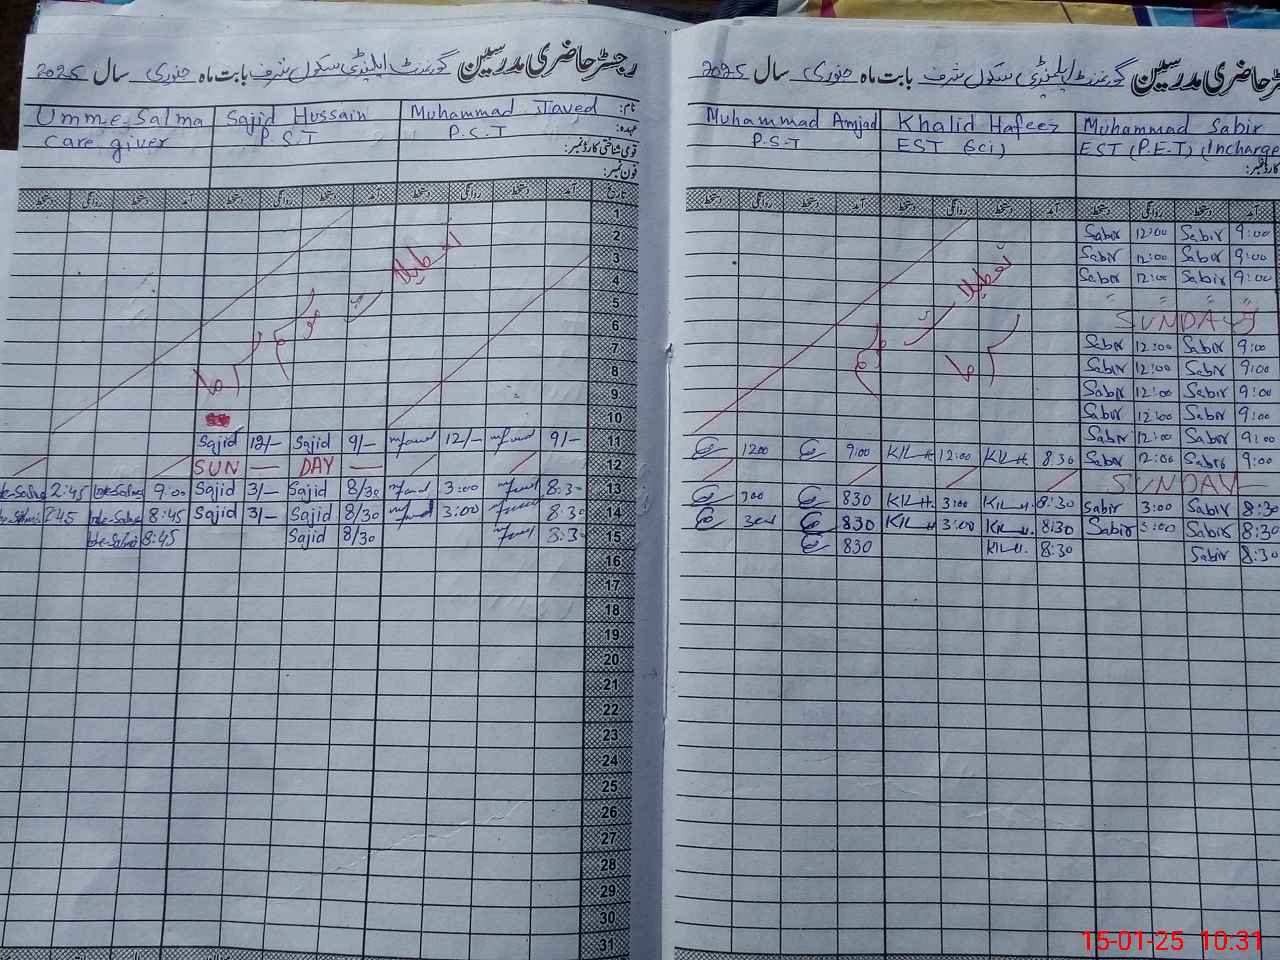 رجسٹر حاضری مدرسین گورنمنٹ ایلیمنٹری سکول شرف بابت ماہ جنوری سال 2025
نام: Muhammad Javed Sajid Hussain Umme Salma
عہدہ: P.S.T P.S.T Care giver
قومی شناختی کارڈ نمبر:
فون نمبر:
تاریخ آمد دستخط روانگی دستخط آمد دستخط روانگی دستخط آمد دستخط روانگی دستخط
1
2
3
4
5
6
7
8
9
10
تعطیلات موسم سرما
Sajid 12/- Sajid 9/- 12/- 9/- 11
SUN — DAY — 12
2:45 9:00 Sajid 3/- Sajid 8/30 3:00 8:30 13
2:45 8:45 Sajid 3/- Sajid 8/30 3:00 8:30 14
8:45 Sajid 8/30 8:30 15
16
17
18
19
20
21
22
23
24
25
26
27
28
29
30
31
رجسٹر حاضری مدرسین گورنمنٹ ایلیمنٹری سکول شرف بابت ماہ جنوری سال 2025
Muhammad Amjad Khalid Hafeez Muhammad Sabir
P.S.T EST (Sci) EST (P.E.T) (Incharge
کارڈ نمبر:
دستخط روانگی دستخط آمد دستخط روانگی دستخط آمد دستخط روانگی دستخط آمد
تعطیلات موسم سرما
Sabir 12:00 Sabir 9:00
Sabir 12:00 Sabir 9:00
Sabir 12:00 Sabir 9:00
" " " "
SUNDAY
Sabir 12:00 Sabir 9:00
Sabir 12:00 Sabir 9:00
Sabir 12:00 Sabir 9:00
Sabir 12:00 Sabir 9:00
Sabir 12:00 Sabir 9:00
1200 9:00 K.H. 12:00 K.H. 8:30 Sabir 12:00 Sabir 9:00
SUNDAY—
300 830 K.H. 3:00 K.H. 8:30 Sabir 3:00 Sabir 8:30
300 830 K.H 3:00 K.H. 8:30 Sabir 3:00 Sabir 8:30
830 K.H. 8:30 Sabir 8:30
15-01-25 10:31